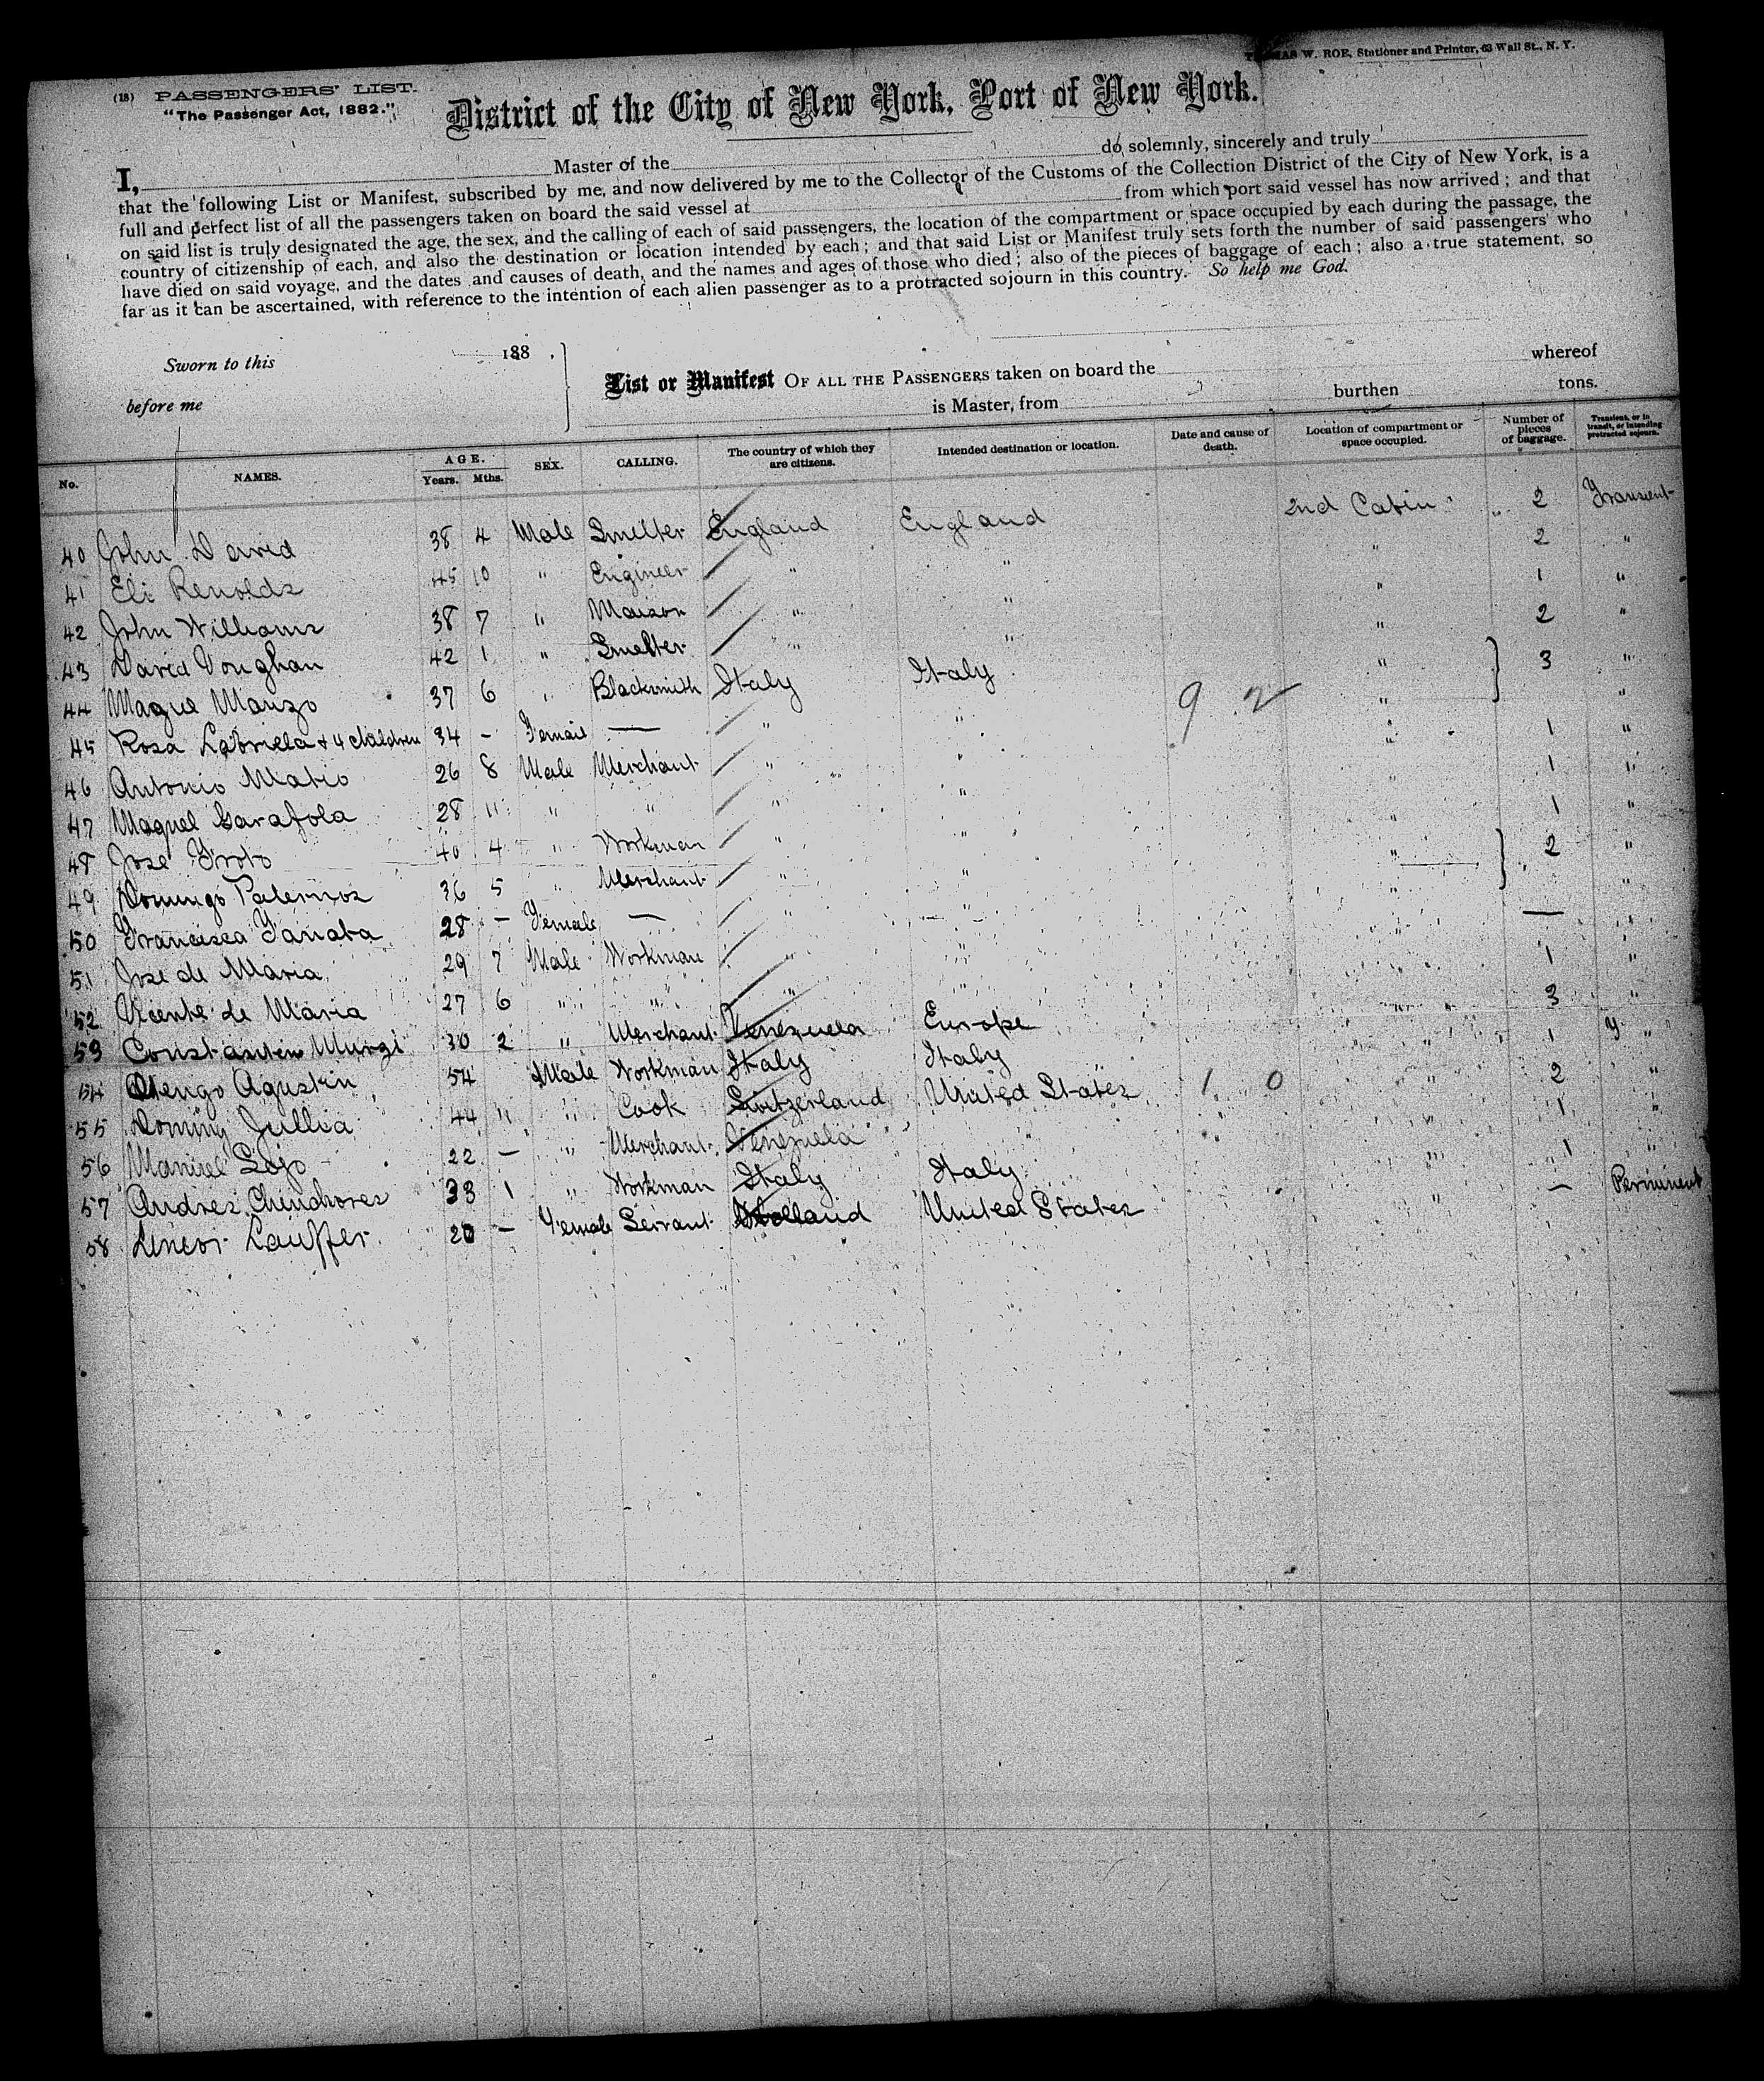 THOMAS W. ROE, Stationer and Printer, 63 Wall St., N. Y.
(18) PASSENGERS' LIST.
"The Passenger Act, 1882."
District of the City of New York, Port of New York.
I, Master of the do solemnly, sincerely and truly
that the following List or Manifest, subscribed by me, and now delivered by me to the Collector of the Customs of the Collection District of the City of New York, is a
full and perfect list of all the passengers taken on board the said vessel at from which port said vessel has now arrived; and that
on said list is truly designated the age, the sex, and the calling of each of said passengers, the location of the compartment or space occupied by each during the passage, the
country of citizenship of each, and also the destination or location intended by each; and that said List or Manifest truly sets forth the number of said passengers who
have died on said voyage, and the dates and causes of death, and the names and ages of those who died; also of the pieces of baggage of each; also a true statement, so
far as it can be ascertained, with reference to the intention of each alien passenger as to a protracted sojourn in this country. So help me God.
Sworn to this 188 .
before me
List or Manifest OF ALL THE PASSENGERS taken on board the whereof
is Master, from burthen tons.
No. NAMES. AGE. Years. Mths. SEX. CALLING. The country of which they are citizens. Intended destination or location. Date and cause of death. Location of compartment or space occupied. Number of pieces of baggage. Transient, or in transit, or intending protracted sojourn.
40 John David 38 4 Male Smelter England England 2nd Cabin 2 Transient
41 Eli Renolds 45 10 " Engineer " " " 2 "
42 John Williams 38 7 " Maison " " " 1 "
43 David Voughan 42 1 " Smelter " " " 2 "
44 Maque Manzo 37 6 " Blacksmith Italy Italy " 3 "
45 Rosa Labriela & 4 children 34 - Femail — " " 9 2 " "
46 Antonio Matio 26 8 Male Merchant " " " 1 "
47 Maquel Garafola 28 11 " " " " " 1 "
48 Jose Troto 40 4 " Workman " " " 1 "
49 Domingo Palermos 36 5 " Merchant " " " 2 "
50 Francisca Tanata 28 - Female — " " " "
51 Jose de Maria 29 7 Male Workman " " " — "
52 Vicente de Maria 27 6 " " " " " 1 "
53 Constantin Murzi 30 2 " Merchant Venezuela Europe " 3 "
54 Agustin 54 Male Workman Italy Italy " 1 "
55 Doming Jullia 44 11 " Cook Switzerland United States 1 0 " 2 "
56 Manuel Sojo 22 — " Merchant Venezuela " " 1 "
57 Andres Chinchores 33 1 " Workman Italy Italy " 1 "
58 Lauffer 20 — Female Servant Holland United States " — Perminent